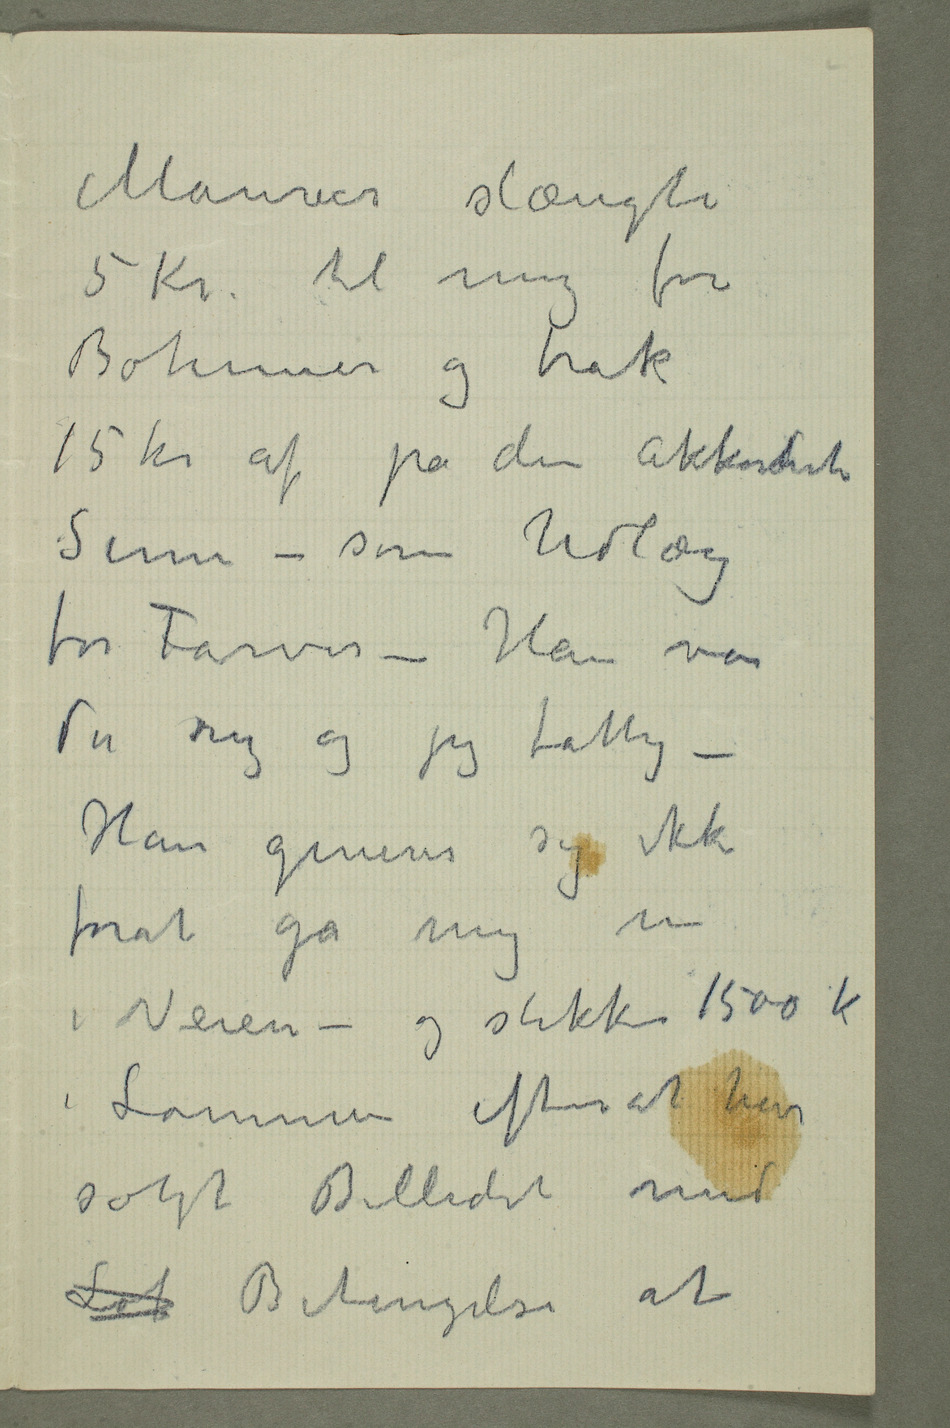 Maurer slængte
5 Kr. til mig for
Bohemer og trak
15 kr af på den akkorderte
Sum – som Udlæg
for Farver – Han var
da rig og jeg fattig –
Han generer sig ikke
forat gå mig en
i Veien – og stikke 1500 k
i Lommen efterat have
solgt Billedet med
Betingelse at